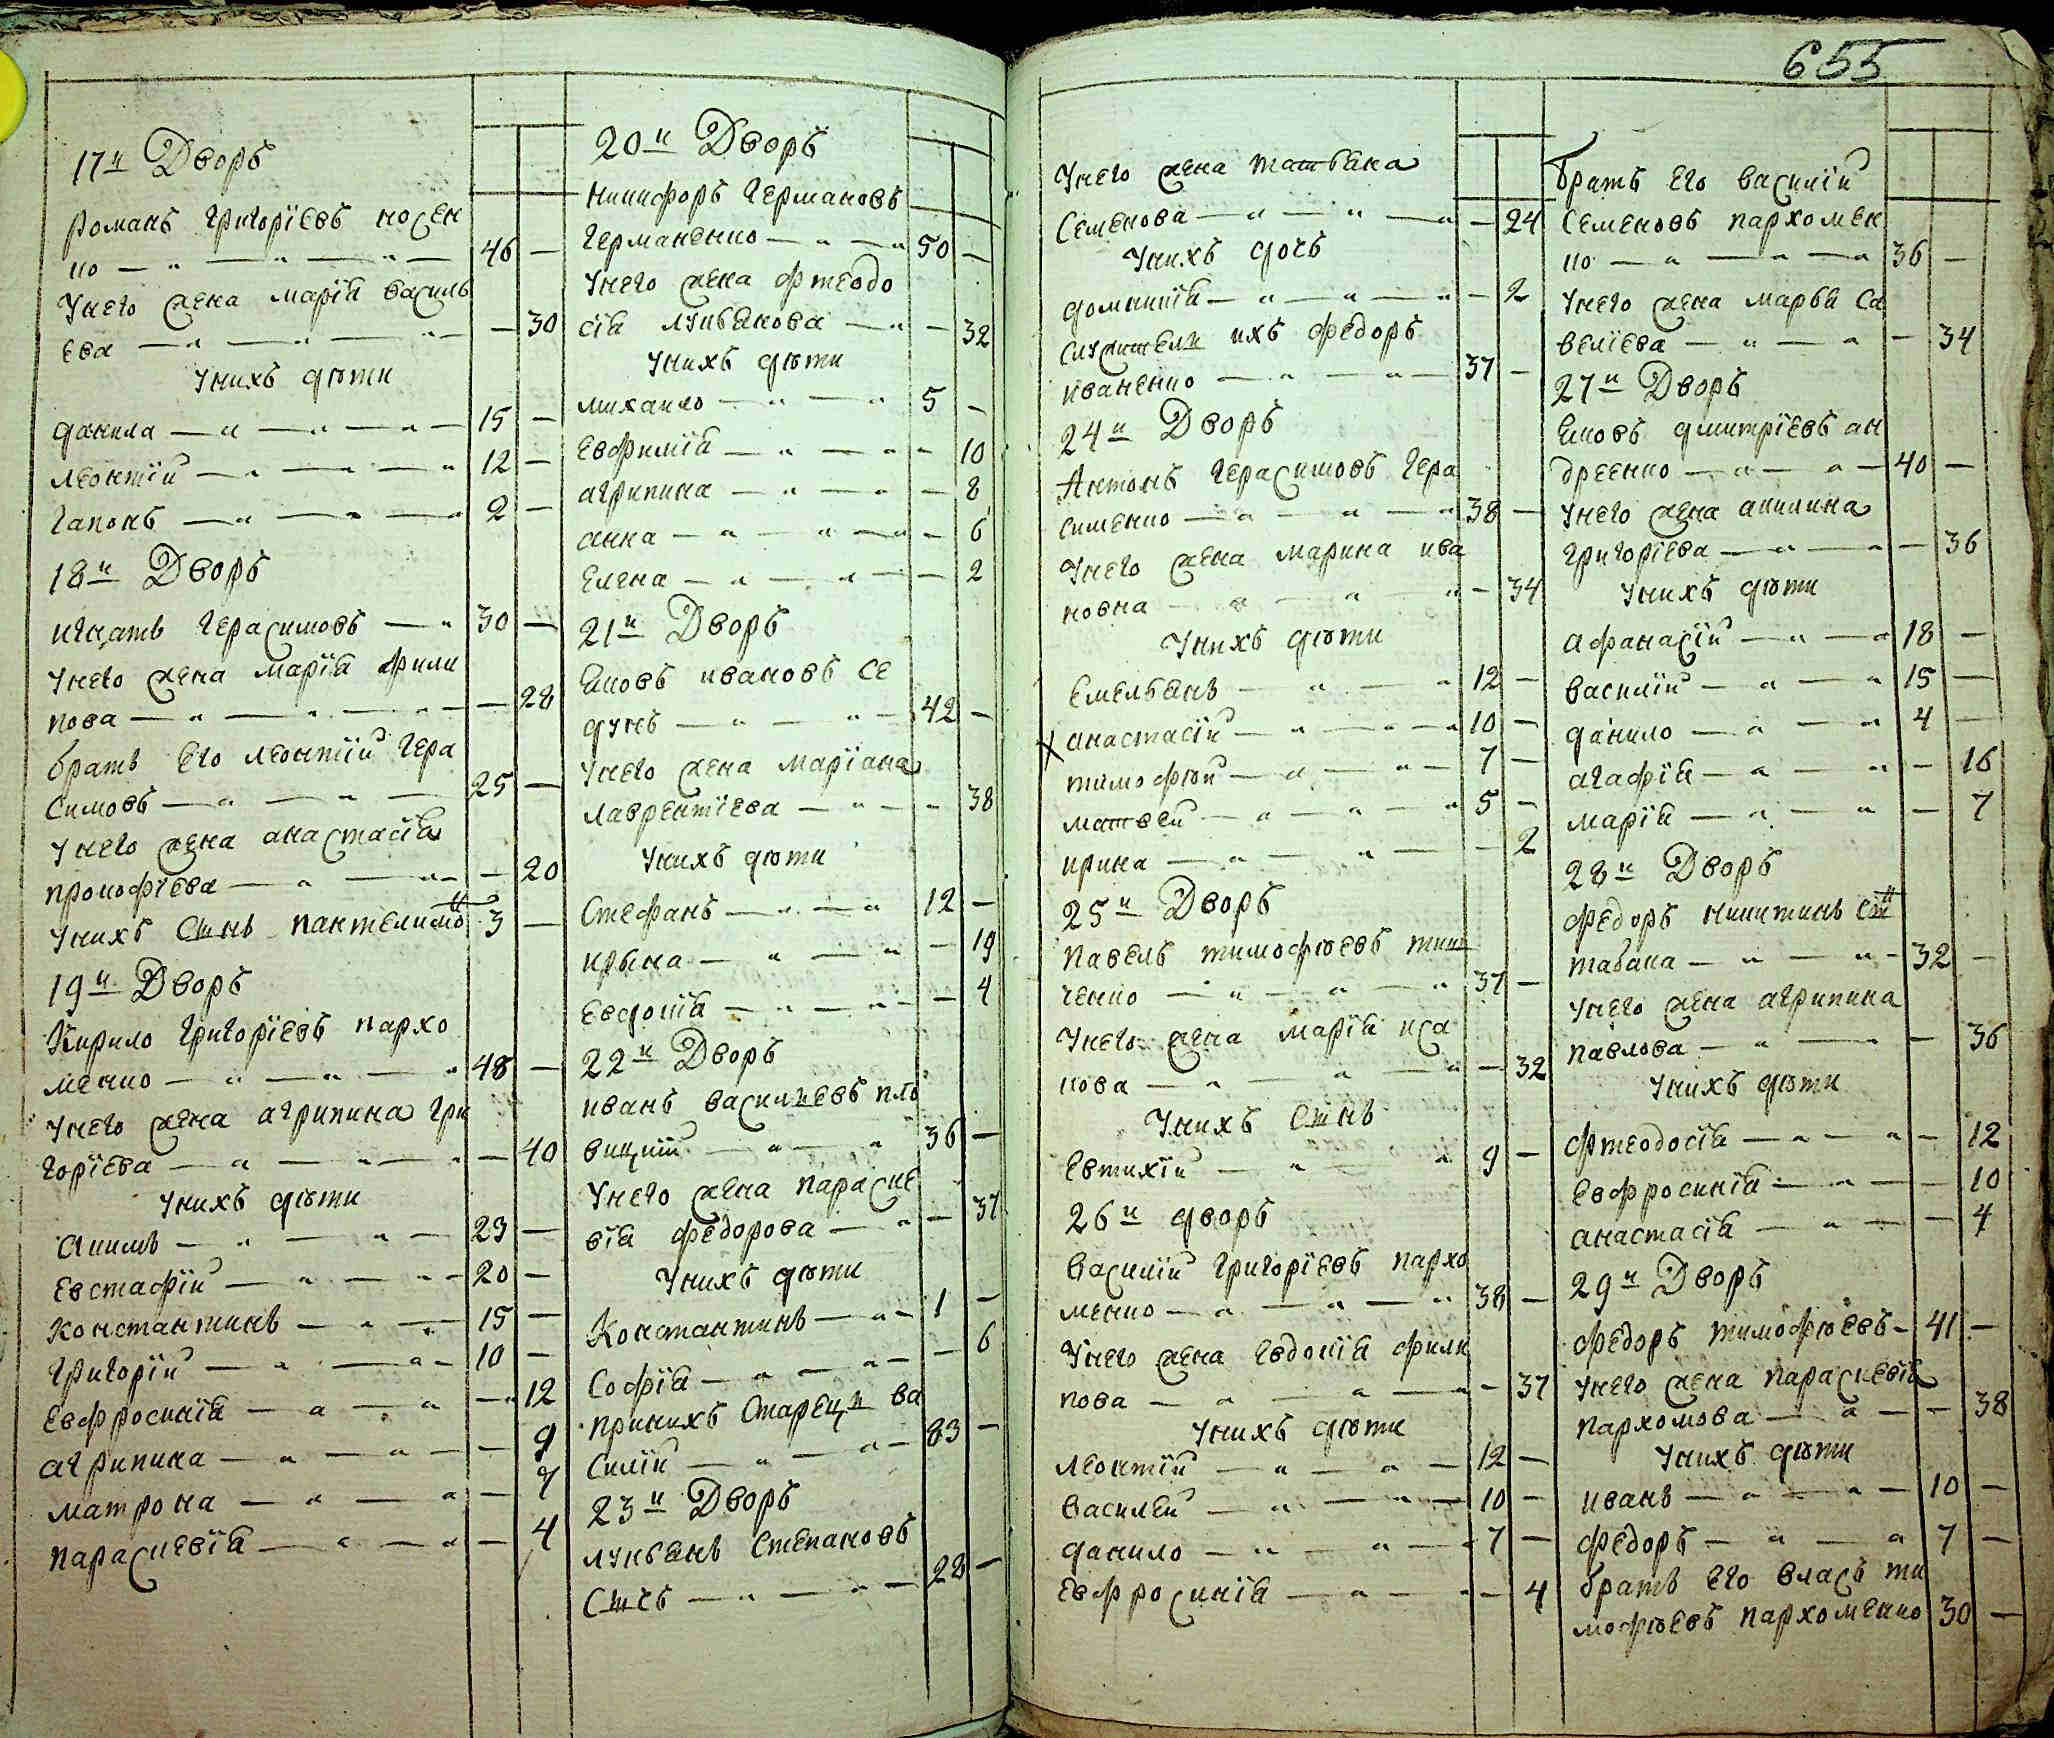 655
17й Дворъ
Романъ Григорїевъ носен
ко 46 —
Унего жена марїя василь
ева — 30
Унихъ дѣти
данила 15 —
леонтїй 12 —
гапонъ 2 —
18й Дворъ
игнатъ Герасимовъ 30 —
Унего жена марїя фили
пова — 28
братъ его леонтїй гера
симовъ 25 —
Унего жена анастасїя
прокофїева — 20
Унихъ сынъ пантелимо 3 —
19й Дворъ
Кирило григорїевъ пархо
менко 48 —
Унего жена агрипина гри
горїева — 40
Унихъ дѣти
Акимъ 23 —
Евстафїй 20 —
Константинъ 15 —
григорїй 10 —
Евфросинїя — 12
агрипина — 9
матрона — 7
параскевїя — 4
20й Дворъ
никифоръ германовъ
германенко 50 —
Унего жена фтеодо
сїя лукьянова — 32
Унихъ дѣти
михаило 5 —
Евфимїя — 10
агрипина — 8
анна — 6
Елена — 2
21й Дворъ
Яковъ ивановъ се
дунъ 42 —
Унего жена марїана
лаврентїева — 38
Унихъ дѣти
Стефанъ 12 —
ирына — 19
Евдокїя — 4
22й Дворъ
иванъ васильевъ пло
вицкїй 36 —
Унего жена параске
вїя федорова — 37
Унихъ дѣти
Константинъ 1 —
Софїя — 6
принихъ старецъ ва
силїй 83 —
23й Дворъ
лукьянъ степановъ
сычъ 28 —
Унего жена татьяна
Семенова — 24
Унихъ дочь
домникїя — 2
служители ихъ федоръ
иваненко 37 —
24й Дворъ
Антонъ герасимовъ гера
сименко 38 —
Унего жена марина ива
новна — 34
Унихъ дѣти
Емельянъ 12 —
анастасїй 10 —
тимофѣй 7 —
матвей 5 —
ирина — 2
25й Дворъ
Павелъ тимофѣевъ тим
ченко 37 —
Унего жена марїя иса
кова — 32
Унихъ сынъ
Евтихїй 9 —
26й дворъ
Василїй григорїевъ пархо
менко 38 —
Унего жена евдокїя фили
пова — 37
Унихъ дѣти
леонтїй 12 —
василей 10 —
данило 7 —
Евфросинїя — 4
братъ его василїй
Семеновъ пархомен
ко 36 —
Унего жена марья са
велїева — 34
27й Дворъ
Яковъ дмитрїевъ ан
дреенко 40 —
Унего жена акилина
григорїева — 36
Унихъ дѣти
афанасїй 18 —
василїй 15 —
данило 4 —
агафїя — 16
марїя — 7
28й Дворъ
федоръ никитинъ
табака 32 —
Унего жена агрипина
павлова — 36
Унихъ дѣти
фтеодосїя — 12
Евфросинїя — 10
анастасїя — 4
29й Дворъ
федоръ тимофѣевъ 41 —
Унего жена параскевїя
пархомова — 38
Унихъ дѣти
иванъ 10 —
федоръ 7 —
братъ его власъ ти
мофѣевъ пархоменко 30 —